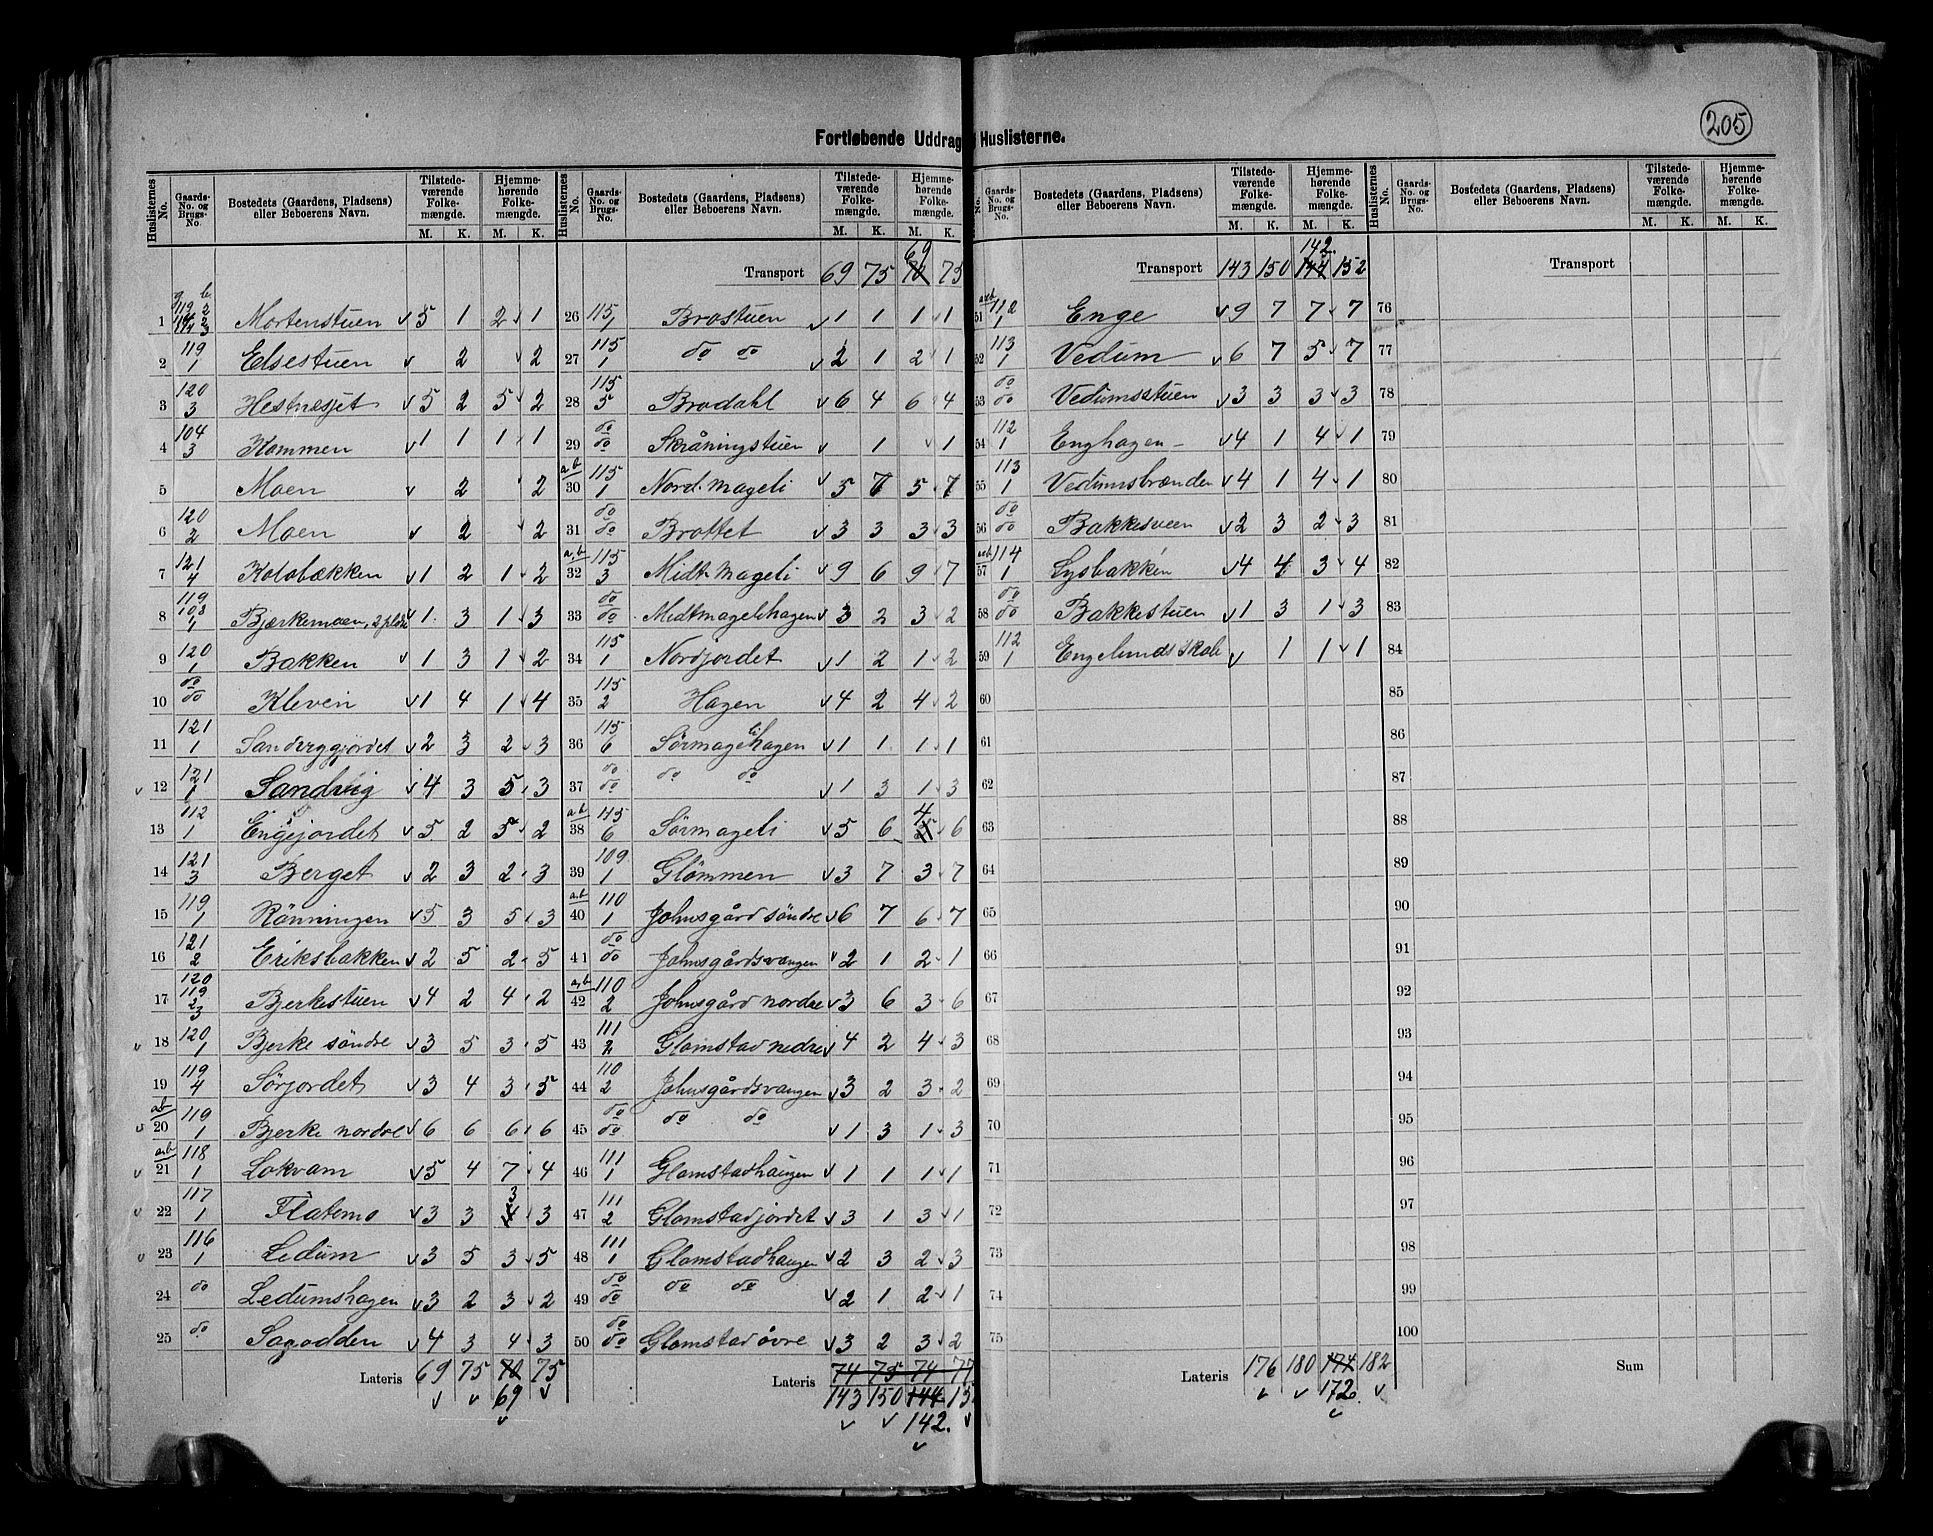 205
Fortløbende Uddrag Huslisterne.
Huslisternes No. | Gaards-No. og Brugs-No. | Bostedets (Gaardens, Pladsens) eller Beboerens Navn. | Tilstedeværende Folkemængde. M. K. | Hjemmehørende Folkemængde. M. K.
1 | 119 2 | Mortenstuen | 5 1 2 1
2 | 119 1 | Elsestuen | 2 2
3 | 120 3 | Hestnesjet | 5 2 5 2
4 | 104 3 | Kommen | 1 1 1 1
5 | Moen | 2 2
6 | 120 2 | Moen | 2 2
7 | 121 4 | Kolobækken | 1 2 1 2
8 | 119 108 1 | Bjerkemoen, 2 pladse | 1 3 1 3
9 | 120 1 | Bakken | 1 3 1 2
10 | do do | Kleven | 1 4 1 4
11 | 121 1 | Sandviggjordet | 2 3 2 3
12 | 121 1 | Sandvig | 4 3 5 3
13 | 112 1 | Engejordet | 5 2 5 2
14 | 121 3 | Berget | 2 3 2 3
15 | 119 1 | Rønningen | 5 3 5 3
16 | 121 2 | Eriksbakken | 2 5 2 5
17 | 120 119 2 3 | Bjerkestuen | 4 2 4 2
18 | 120 1 | Bjerke søndre | 3 5 3 5
19 | 119 4 | Sørjordet | 3 4 3 5
a.b 20 | 119 1 | Bjerke nordre | 6 6 6 6
a.b 21 | 118 1 | Lokvam | 5 4 7 4
22 | 117 1 | Flatemo | 3 3 3 3
23 | 116 1 | Ledum | 3 5 3 5
24 | do | Ledumshagen | 3 2 3 2
25 | do | Sagodden | 4 3 4 3
Lateris 69 75 70 75
69
Huslisternes No. | Gaards-No. og Brugs-No. | Bostedets (Gaardens, Pladsens) eller Beboerens Navn. | Tilstedeværende Folkemængde. M. K. | Hjemmehørende Folkemængde. M. K.
69
Transport 69 75 70 75
26 | 115 1 | Brostuen | 1 1 1 1
27 | 115 1 | do do | 2 1 2 1
28 | 115 5 | Brodahl | 6 4 6 4
29 | do do | Skråningstuen | 1 1
a.b 30 | 115 1 | Nord. Mageli | 5 7 5 7
31 | do do | Brottet | 3 3 3 3
a.b 32 | 115 3 | Midt. Mageli | 9 6 9 7
33 | do do | Midtmagelihagen | 3 2 3 2
34 | 115 1 | Nordjordet | 1 2 1 2
35 | 115 2 | Hagen | 4 2 4 2
36 | 115 6 | Sørmagelihagen | 1 1 1 1
37 | do do | do do | 1 3 1 3
a.b 38 | 115 6 | Sørmageli | 5 6 4 6
39 | 109 1 | Glommen | 3 7 3 7
a.b 40 | 110 1 | Johnsgård søndre | 6 7 6 7
41 | do do | Johnsgårdsvangen | 2 1 2 1
a.b 42 | 110 2 | Johnsgård nordre | 3 6 3 6
43 | 111 2 | Glomstad nedre | 4 2 4 3
44 | 110 2 | Johnsgårdsvangen | 3 2 3 2
45 | do do | do do | 1 3 1 3
46 | 111 1 | Glomstadhaugen | 1 1 1 1
47 | 111 2 | Glomstadjordet | 3 1 3 1
48 | 111 1 | Glomstadhaugen | 2 3 2 3
49 | do do | do do | 2 1 2 1
50 | do do | Glomstad øvre | 3 2 3 2
Lateris 74 75 74 77
143 150 144 15
142.
No. | Gaards-No. og Brugs-No. | Bostedets (Gaardens, Pladsens) eller Beboerens Navn. | Tilstedeværende Folkemængde. M. K. | Hjemmehørende Folkemængde. M. K.
142.
Transport 143 150 144 152
a.b 51 | 112 1 | Enge | 9 7 7 7
52 | 113 1 | Vedum | 6 7 5 7
53 | do do | Vedumsstuen | 3 3 3 3
54 | 112 1 | Enghagen | 4 1 4 1
55 | 113 1 | Vedumsbrænden | 4 1 4 1
56 | do do | Bakkesveen | 2 3 2 3
a.b 57 | 114 1 | Lysbakken | 4 4 3 4
58 | do do | Bakkestuen | 1 3 1 3
59 | 112 1 | Engelunds skole | 1 1 1
60
61
62
63
64
65
66
67
68
69
70
71
72
73
74
75
Lateris 176 180 174 182
172.
Huslisternes No. | Gaards-No. og Brugs-No. | Bostedets (Gaardens, Pladsens) eller Beboerens Navn. | Tilstedeværende Folkemængde. M. K. | Hjemmehørende Folkemængde. M. K.
Transport
76
77
78
79
80
81
82
83
84
85
86
87
88
89
90
91
92
93
94
95
96
97
98
99
100
Sum